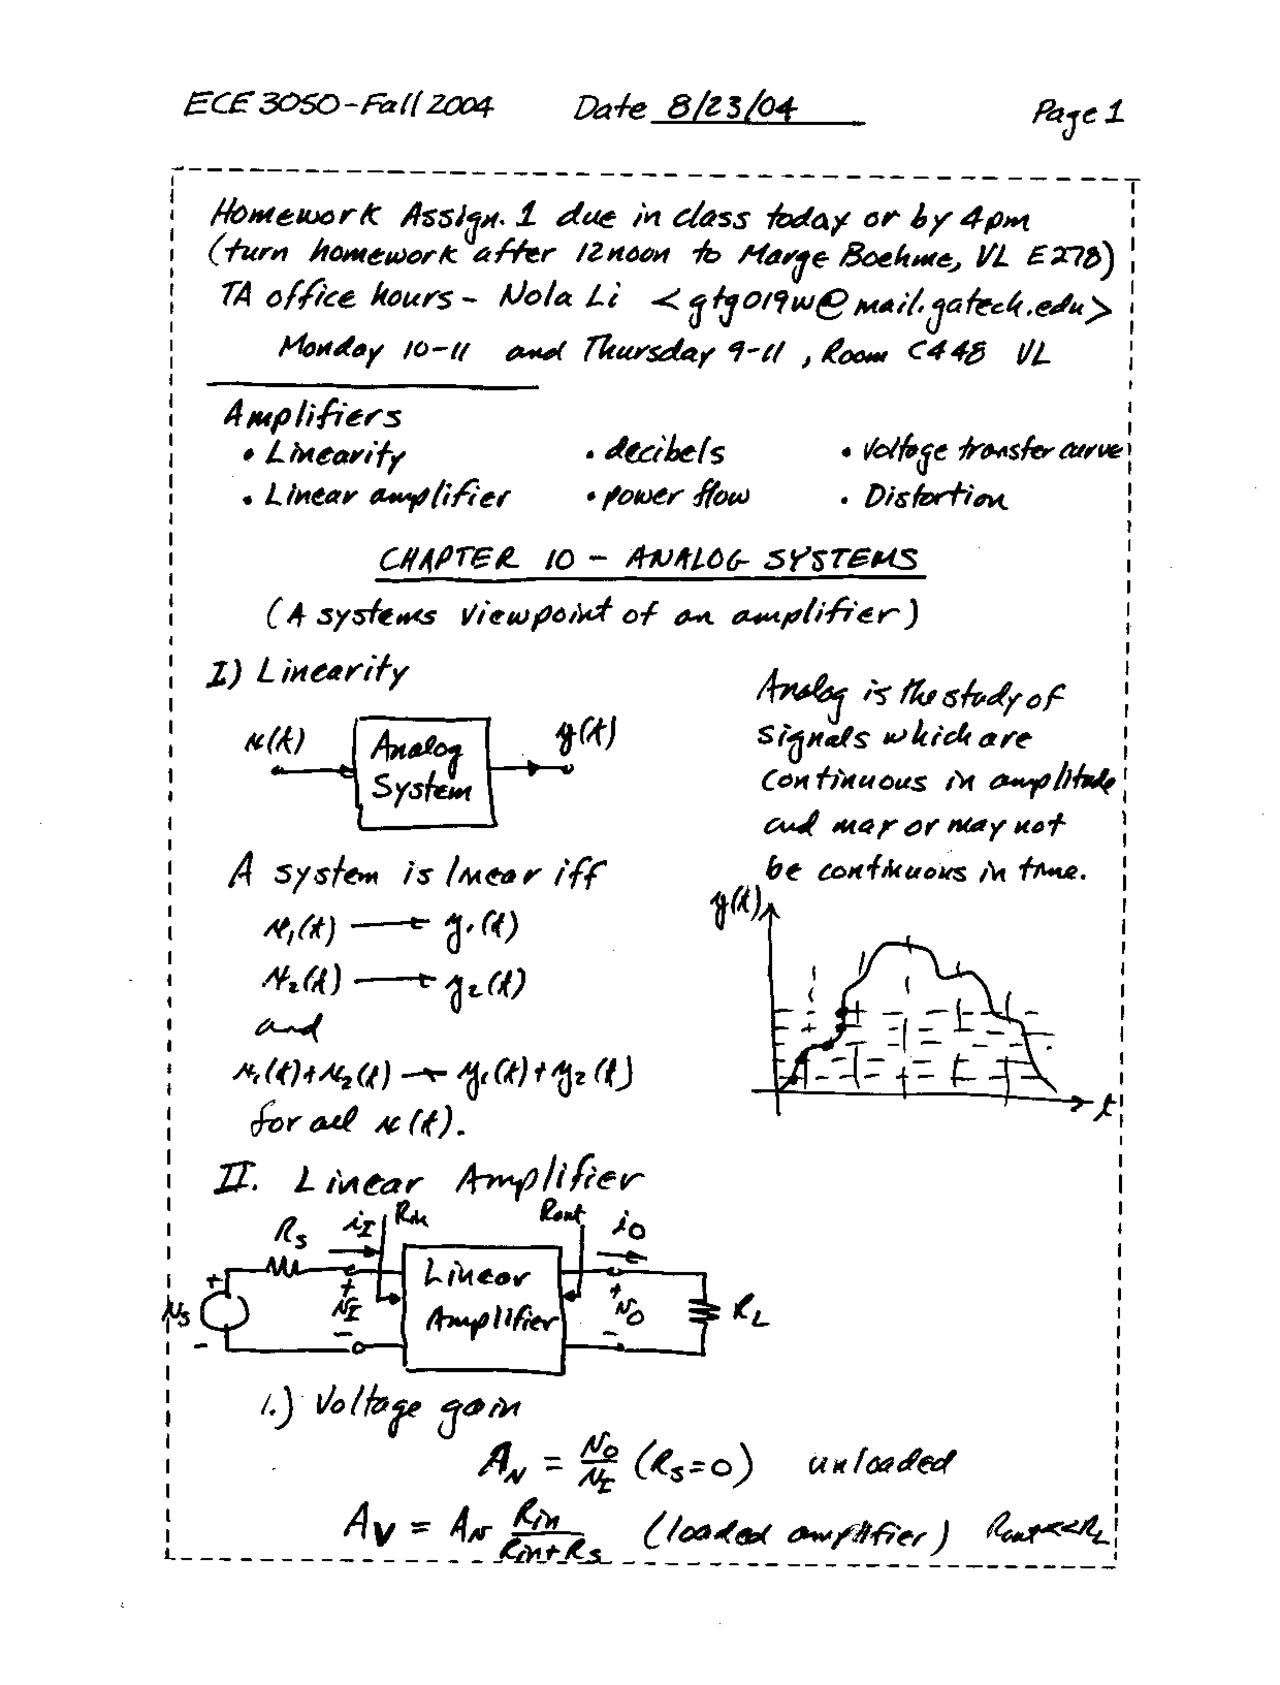 ECE 3050-Fall 2004 Date 8/23/04 Page 1
Homework Assign. 1 due in class today or by 4pm
(turn homework after 12noon to Marge Boehme, VL E278)
TA office hours - Nola Li <gtg019w@mail.gatech.edu>
Monday 10-11 and Thursday 9-11, Room C448 VL
Amplifiers
• Linearity • decibels • Voltage transfer curve
• Linear amplifier • power flow • Distortion
CHAPTER 10 - ANALOG SYSTEMS
(A systems viewpoint of an amplifier)
I) Linearity
x(t) Analog System y(t)
Analog is the study of
signals which are
continuous in amplitude
and may or may not
be continuous in time.
A system is linear iff
x1(t) → y1(t)
x2(t) → y2(t)
and
x1(t)+x2(t) → y1(t)+y2(t)
for all x(t).
y(t)
t
II. Linear Amplifier
Rs iI Rin Rout iO
+ vs - + vI - Linear Amplifier + vO - RL
1.) Voltage gain
Av = vO/vI (Rs=0) unloaded
AV = Av Rin/(Rin+Rs) (loaded amplifier) Rout<<RL